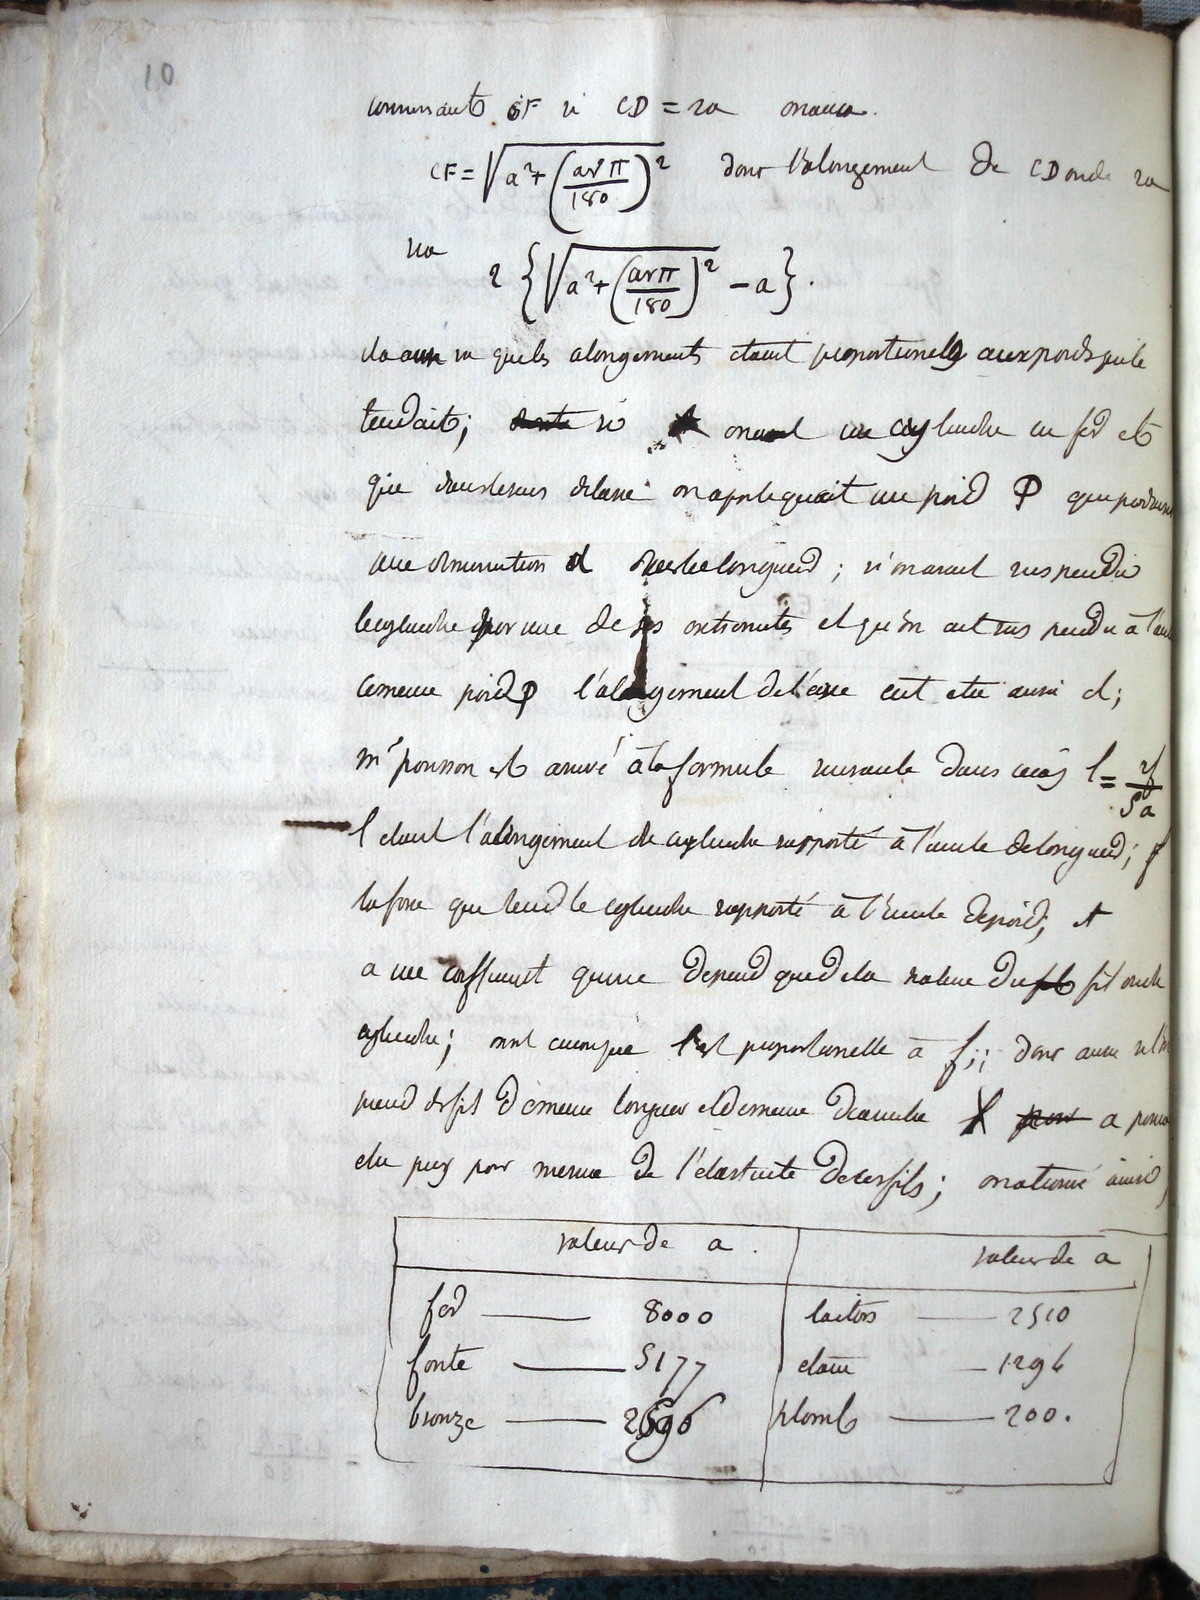 10
connaissant EF si CD = 2a on aura.
CF = √a² + (arπ/180)² donc l'alongement de CD ou de 2a
sera 2 {√a² + (arπ/180)² − a}.
il a vu que les alongements etait proportionels aux poids qui le
tendait; si on avait un cylindre en fer et
que dans le sens de l'axe on appliquait un poid P qui produise
une diminution d sur la longueur; si on avait suspendu
le cylindre par une de ses extremités et qu'on eut suspendu à l'autre
ce meme poid P l'alongement de l'axe eut eté aussi d;
mr poisson est arrivé à la formule suivante dans ce cas l = 2f/5a
l etant l'alongement de cylindre rapporté à l'unité de longueur; f
la force qui tend le cylindre rapporté à l'unité de poid; et
a un coefficient qui ne depend que de la nature du fil ou de
cylindre; l est proportionelle à f; donc aussi si l'on
prend des fils de meme longueur et de meme diametre a pourra
etre pris pour mesure de l'elasticité de ces fils; on a trouvé ainsi
valeur de a. valeur de a
fer — 8000 laiton — 2510
fonte — 5177 etain — 1296
bronze — plomb — 200.